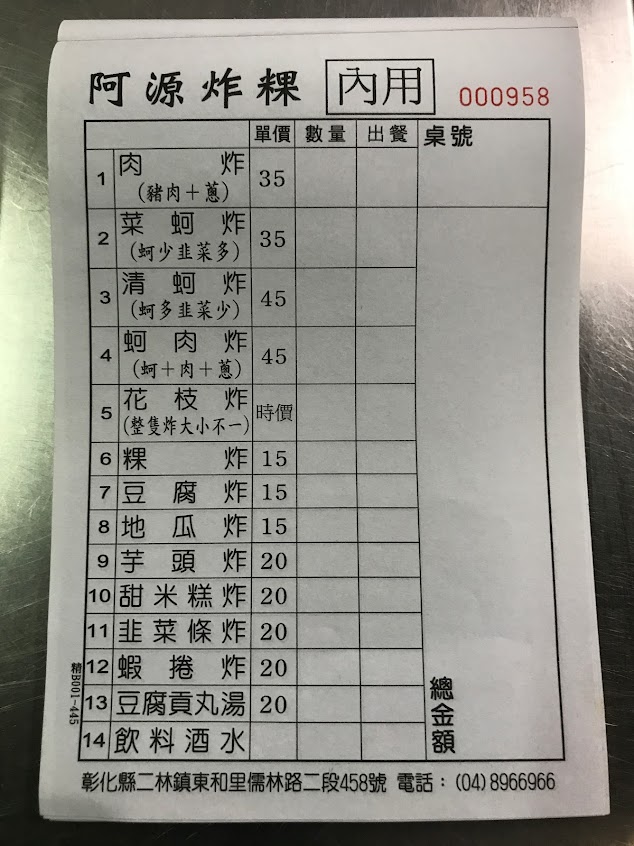 阿源炸粿 內用 000958
單價 數量 出餐 桌號
1 肉炸 35
(豬肉＋蔥)
2 菜蚵炸 35
(蚵少韭菜多)
3 清蚵炸 45
(蚵多韭菜少)
4 蚵肉炸 45
(蚵＋肉＋蔥)
5 花枝炸 時價
(整隻炸大小不一)
6 粿炸 15
7 豆腐炸 15
8 地瓜炸 15
9 芋頭炸 20
10 甜米糕炸 20
11 韭菜條炸 20
12 蝦捲炸 20
13 豆腐貢丸湯 20
14 飲料酒水
總金額
精B001-445
彰化縣二林鎮東和里儒林路二段458號 電話：(04)8966966